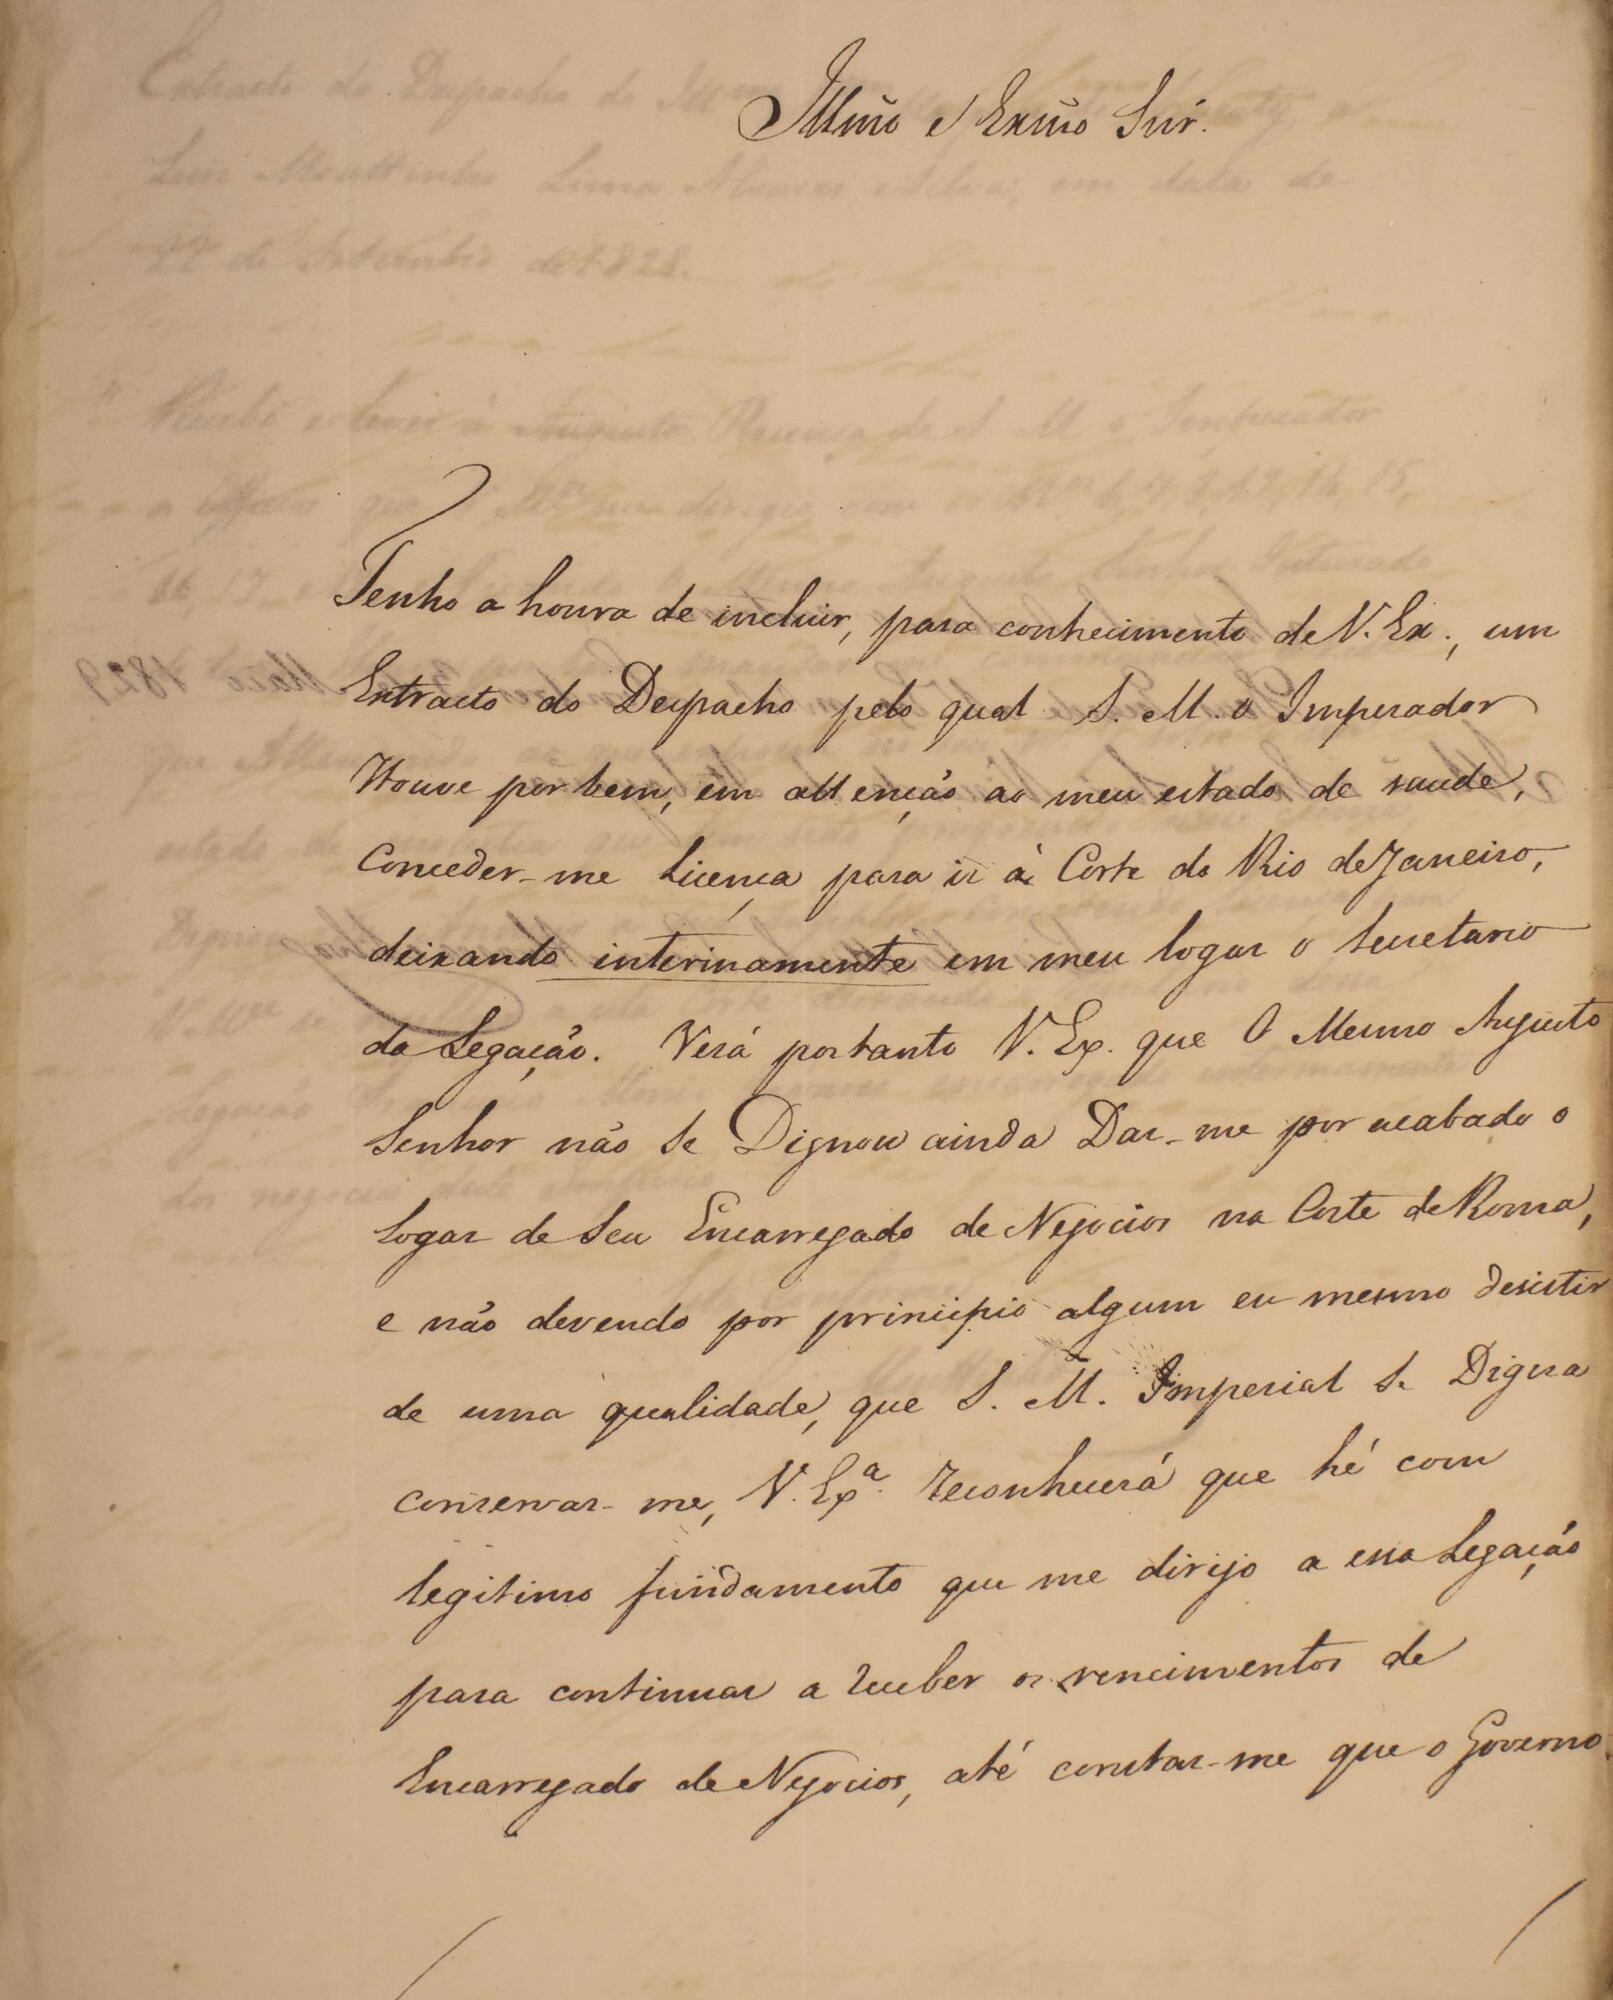 Illmo e Exmo Snr.
Tenho a honra de incluir, para conhecimento de V. Ex., um
Extracto do Despacho pelo qual S. M. o Imperador
Houve por bem, em attenção ao meu estado de saude,
Conceder-me Licença para ir á Corte do Rio de Janeiro,
deixando interinamente em meu logar o Secretario
da Legação. Verá portanto V. Ex. que O Mesmo Augusto
Senhor não Se Dignou ainda Dar-me por acabado o
logar de Seu Encarregado de Negocios na Corte de Roma,
e não devendo por principio algum eu mesmo desistir
de uma qualidade, que S. M. Imperial Se Digna
conservar-me, V. Exª. reconhecerá que hé com
legitimo fundamento que me dirijo a essa Legação
para continuar a receber os vencimentos de
Encarregado de Negocios, até constar-me que o Governo